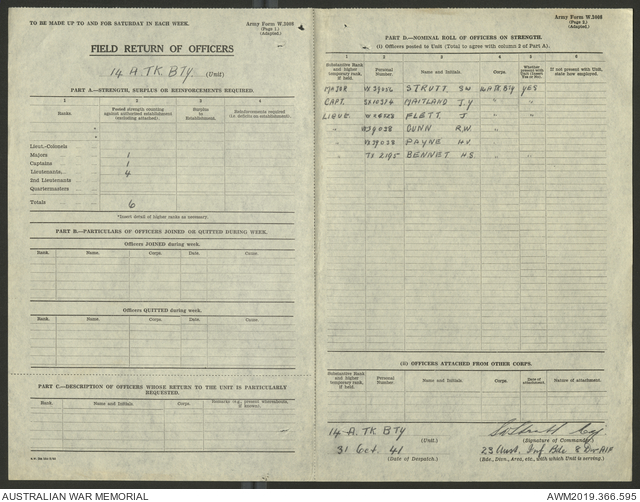 TO BE MADE UP TO AND FOR SATURDAY IN EACH WEEK.
Army Form W.3008
(Page 1.)
(Adapted.)
FIELD RETURN OF OFFICERS
14 A.TK.BTY. (Unit)
PART A.—STRENGTH, SURPLUS OR REINFORCEMENTS REQUIRED.
1 2 3 4
Ranks. Posted strength counting against authorised establishment (excluding attached). Surplus to Establishment. Reinforcements required (i.e. deficits on establishment).
*
*
Lieut.-Colonels
Majors 1
Captains 1
Lieutenants 4
2nd Lieutenants
Quartermasters
Totals 6
*Insert detail of higher ranks as necessary.
PART B.—PARTICULARS OF OFFICERS JOINED OR QUITTED DURING WEEK.
Officers JOINED during week.
Rank. Name. Corps. Date. Whence.
Officers QUITTED during week.
Rank. Name. Corps. Date.
PART C.—DESCRIPTION OF OFFICERS WHOSE RETURN TO THE UNIT IS PARTICULARLY REQUESTED.
Rank. Name and Initials. Corps. Remarks (e.g., present whereabouts, if known).
Army Form W.3008
(Page 2.)
(Adapted.)
PART D.—NOMINAL ROLL OF OFFICERS ON STRENGTH.
(i) Officers posted to Unit (Total to agree with column 2 of Part A).
1 2 3 4 5 6
Substantive Rank and higher temporary rank, if held. Personal Number. Name and Initials. Corps. Whether present with Unit (Insert Yes or No). If not present with Unit, state how employed.
MAJOR STRUTT YES
CAPT. MAITLAND J.Y " "
LIEUT. FLETT J " "
" GUNN R.W. " "
" PAYNE H.V. " "
" TX 2195 BENNET H.S. " "
(ii) OFFICERS ATTACHED FROM OTHER CORPS.
Substantive Rank and higher temporary rank, if held. Personal Number. Name and Initials. Corps. Date of attachment. Nature of attachment.
14 A.TK BTY (Unit.)
(Signature of Commander)
31 Oct. 41 (Date of Despatch.)
23 Aust. Inf Bde 8 Div AIF
(Bde., Divn., Area, etc., with which Unit is serving.)
AUSTRALIAN WAR MEMORIAL
AWM2019.366.595